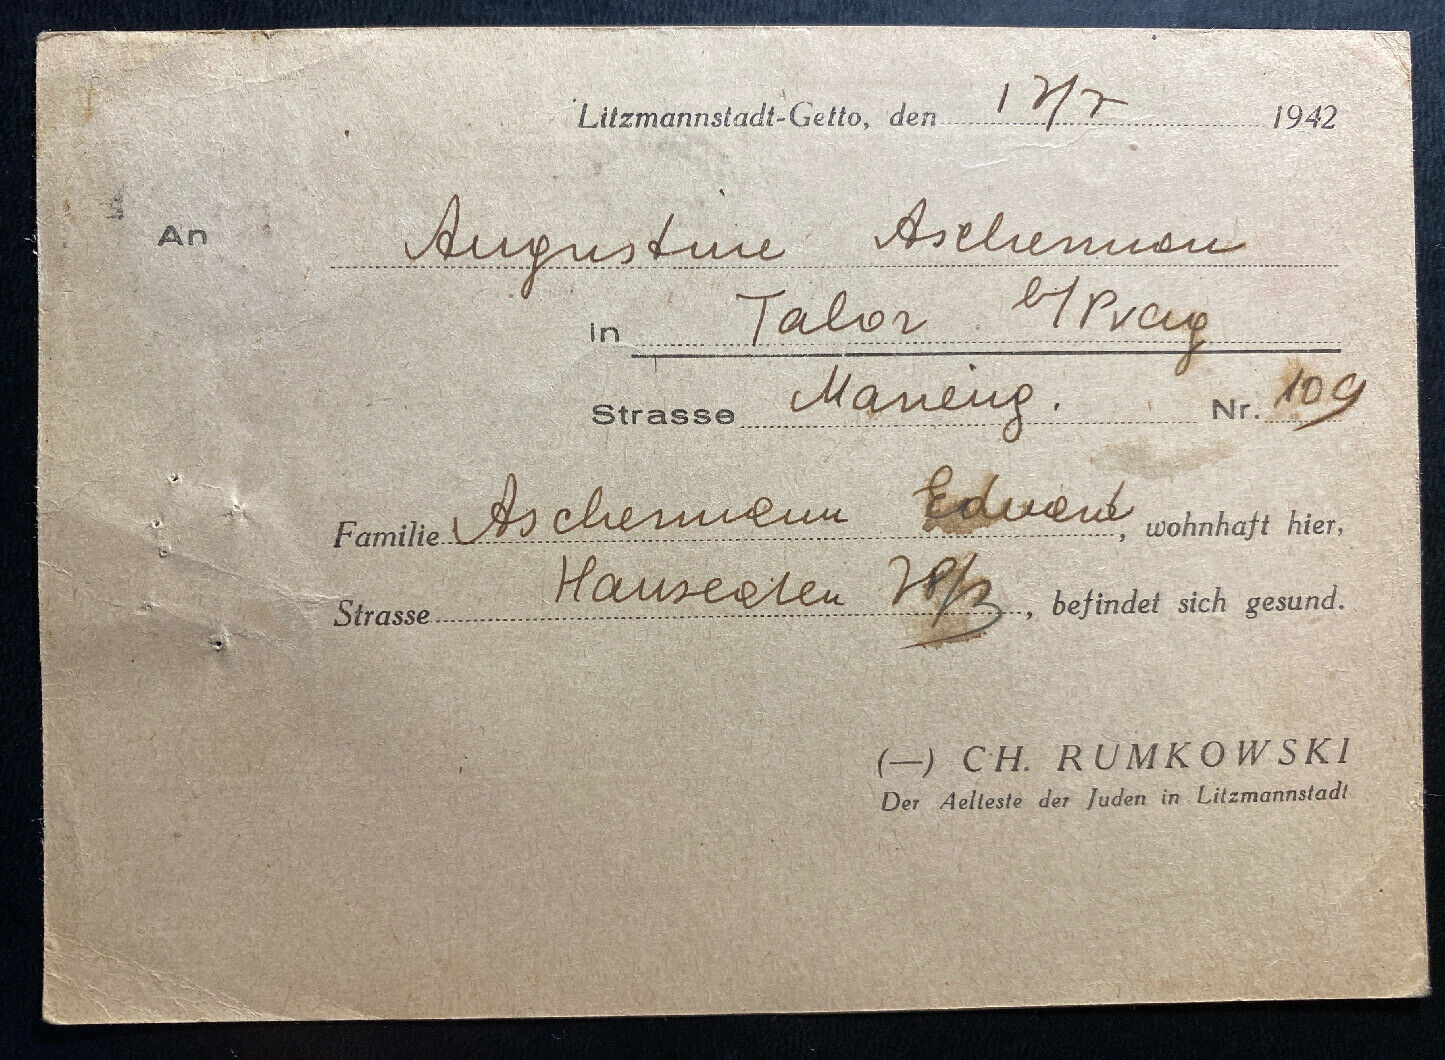 Litzmannstadt-Getto, den 1942
An Augustine Aschermann
in Tabor b/Prag
Strasse Nr. 109
Familie Aschermann Eduard, wohnhaft hier,
Strasse Hanseaten, befindet sich gesund.
(—) CH. RUMKOWSKI
Der Aelteste der Juden in Litzmannstadt